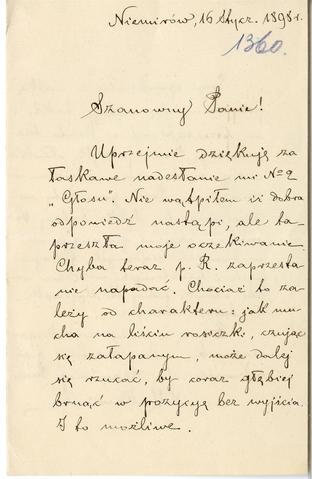 Niemirów, 16 Stycz. 1898 r.
1360.
Szanowny Panie!
Uprzejmie dziękuję za
łaskawe nadesłanie mi No 2
„Głosu”. Nie wątpiłem iż dobra
odpowiedź nastąpi, ale ta
przeszła moje oczekiwanie.
Chyba teraz p. R. zaprzesta-
nie napadać. Chociaż to za-
leży od charakteru: jak mu-
cha na liściu rosiczki, czując
się złapanym, może dalej
się rzucać, by coraz głębiej
brnąć w pozycyę bez wyjścia.
I to możliwe.